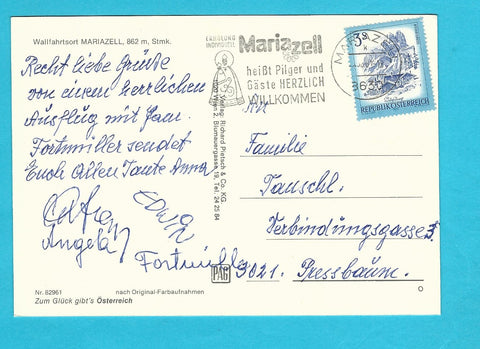 Wallfahrtsort MARIAZELL, 862 m, Stmk.
Recht liebe Grüße
von einem herrlichen
Ausflug mit Fam.
Fortmüller sendet
Euch Allen Tante Anna
Angela
Fortmüller
Nr. 82961
nach Original-Farbaufnahmen
Zum Glück gibt's Österreich
Verlag: Richard Pietsch & Co. KG.
1020 Wien 2, Blumauergasse 19, Tel: 24 25 84
PAG
ERHOLUNG
INDIVIDUELL
Mariazell
heißt Pilger und
Gäste HERZLICH
WILLKOMMEN
MARIAZELL
8630
S 3
REPUBLIK ÖSTERREICH
An
Familie
Tauschl.
Verbindungsgasse 3.
3021. Pressbaum.